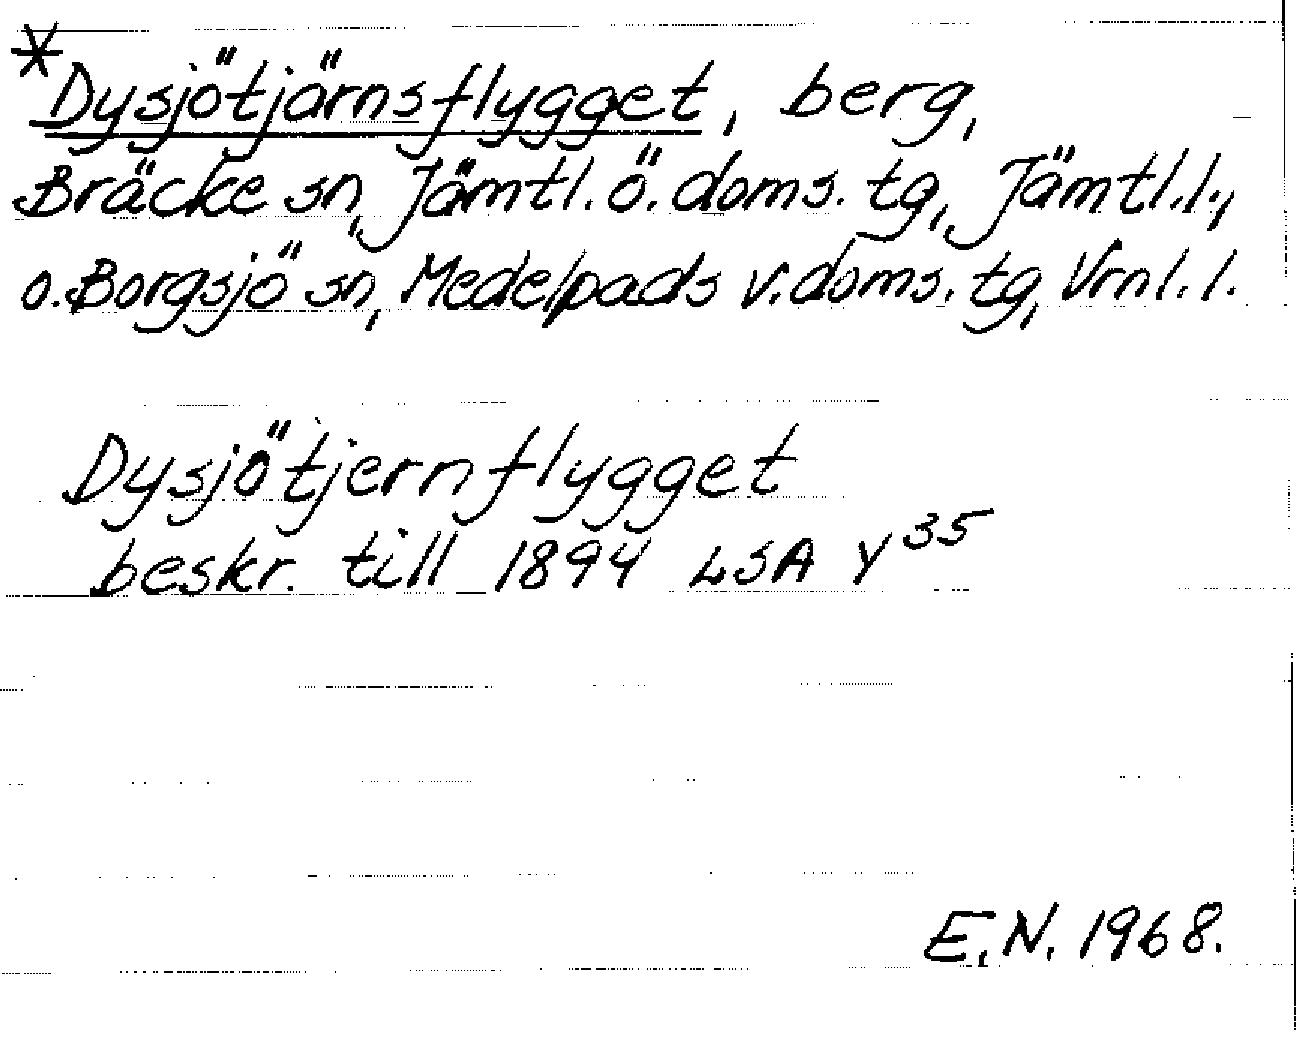 *Dysjötjärnsflygget, berg,
Bräcke sn, Jämtl. ö. doms. tg, Jämtl. l.,
o. Borgsjö sn, Medelpads v. doms. tg, Vrnl. l.
Dysjötjernflygget
beskr. till 1894 LSA Y 35
E.N. 1968.